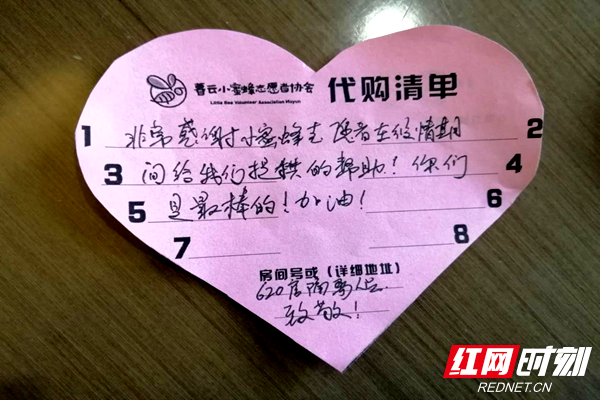 暮云小蜜蜂志愿者协会 代购清单
Little Bee Volunteer Association Muyun
1 非常感谢小蜜蜂志愿者在疫情期 2
3 间给我们提供的帮助！你们 4
5 是最棒的！加油！ 6
7 8
房间号或（详细地址）
620房隔离人员.
致敬！
红网时刻
REDNET.CN